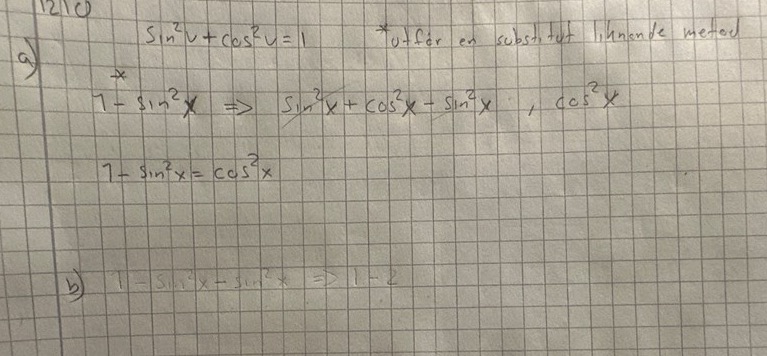 1210
sin²v + cos²v = 1 *utför en substitut liknande metod
a)
*
1 - sin²x => sin²x + cos²x - sin²x , cos²x
1 - sin²x = cos²x
b) 1 - sin²x - sin²x => 1 - 2